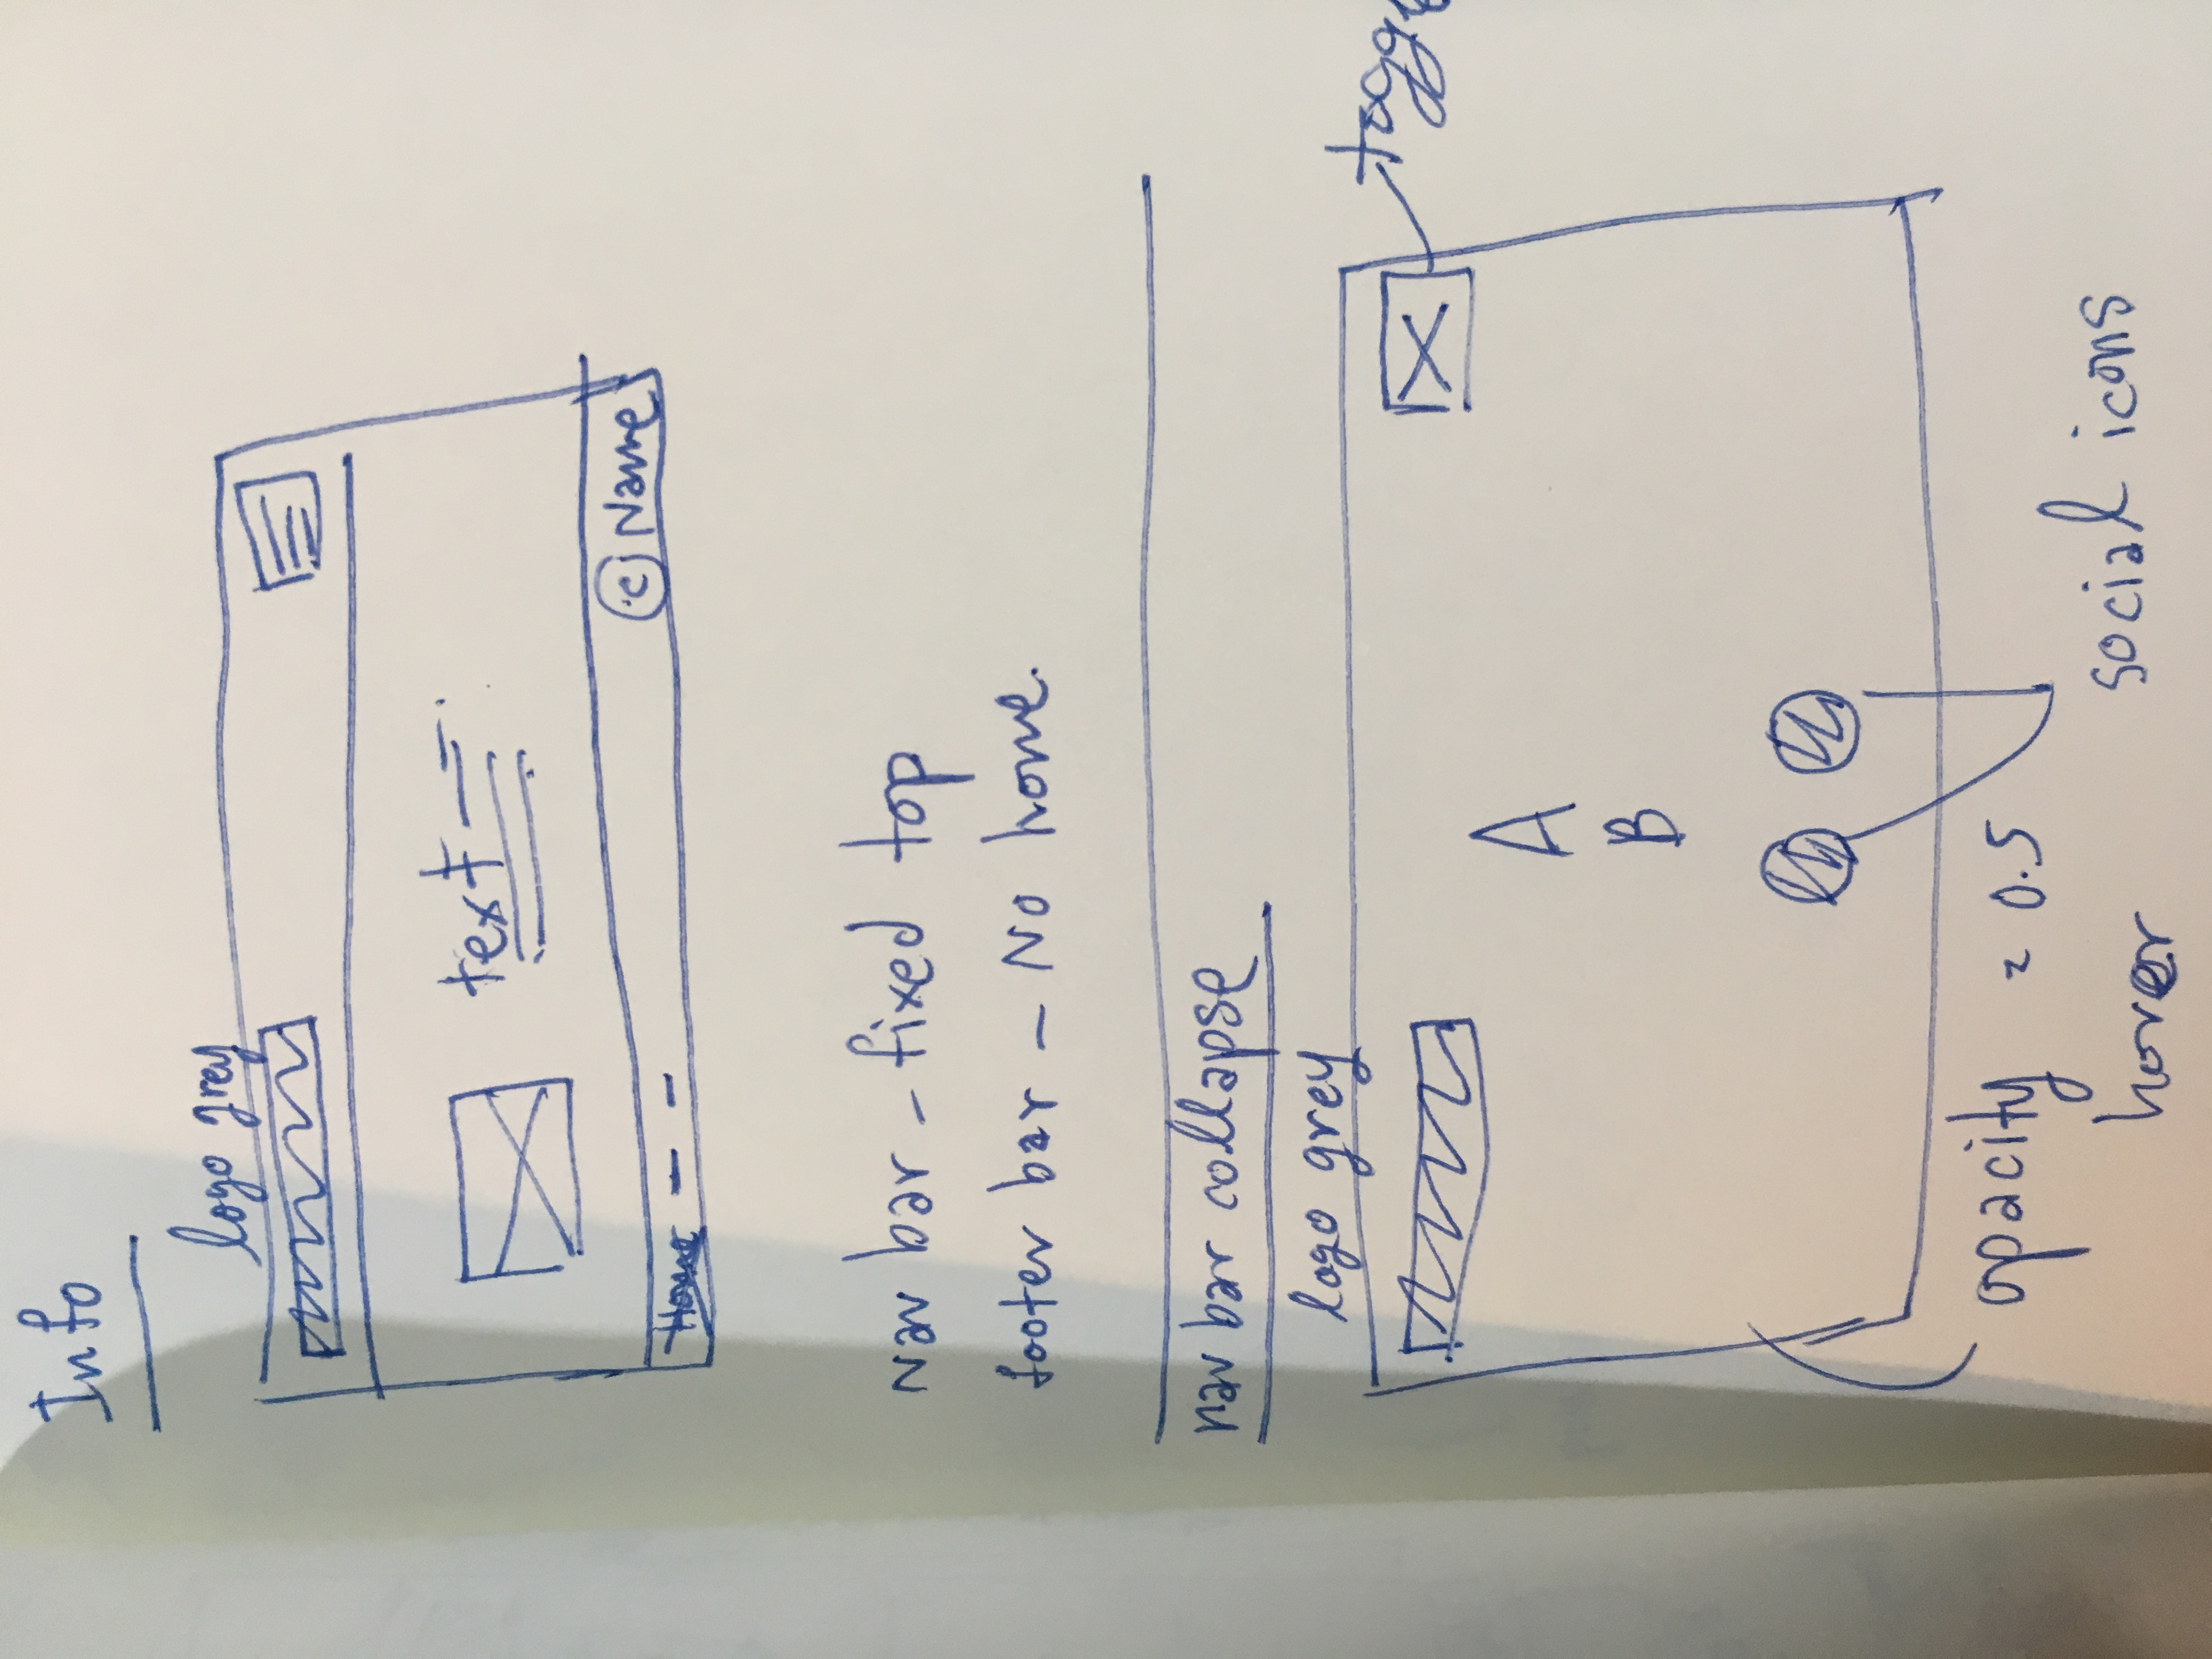 Info
logo grey
text
© Name
Home
Nav bar - fixed top
footer bar - No home.
nav bar collapse
logo grey
A
B
opacity = 0.5
hover
social icons